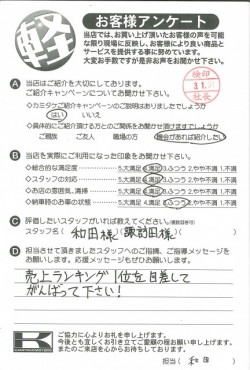 軽
お客様アンケート
当店では、お買い上げ頂いたお客様の声を可能
な限り現場に反映し、お客様により良い商品と
サービスを提供する事に努めています。
大変お手数ですが是非お声をお聞かせ下さい。
検印
社長
A 当店はご紹介を大切にしております。
ご紹介キャンペーンについてお聞かせ下さい。
◇カミタケご紹介キャンペーンのご説明はありましたでしょうか
はい いいえ
◇具体的にご紹介頂ける方とのご関係をお聞かせ頂けますでしょうか
ご親族 ご友人 職場の方 機会があれば紹介したい
B 当店を実際にご利用になった印象をお聞かせ下さい。
◇総合的な満足度 5.大満足 4.満足 3.ふつう 2.やや不満 1.不満
◇スタッフの対応 5.大満足 4.満足 3.ふつう 2.やや不満 1.不満
◇お店の雰囲気、清掃 5.大満足 4.満足 3.ふつう 2.やや不満 1.不満
◇納車時のお車の状態 5.大満足 4.満足 3.ふつう 2.やや不満 1.不満
C 評価したいスタッフがいれば教えてください。(複数回答可)
スタッフ名( 和田様 諏訪田様 )
D 担当させて頂きましたスタッフへのご指摘、ご指導メッセージを
お願いします。応援メッセージもぜひお願い致します。
売上ランキング1位を目差して
がんばって下さい!
K
ご協力に心よりお礼を申し上げます。
今後とも宜しくお引き立てご愛顧の程お願い申し上げます。
またのご来店を心からお待ちしております。
担当( 和田 )